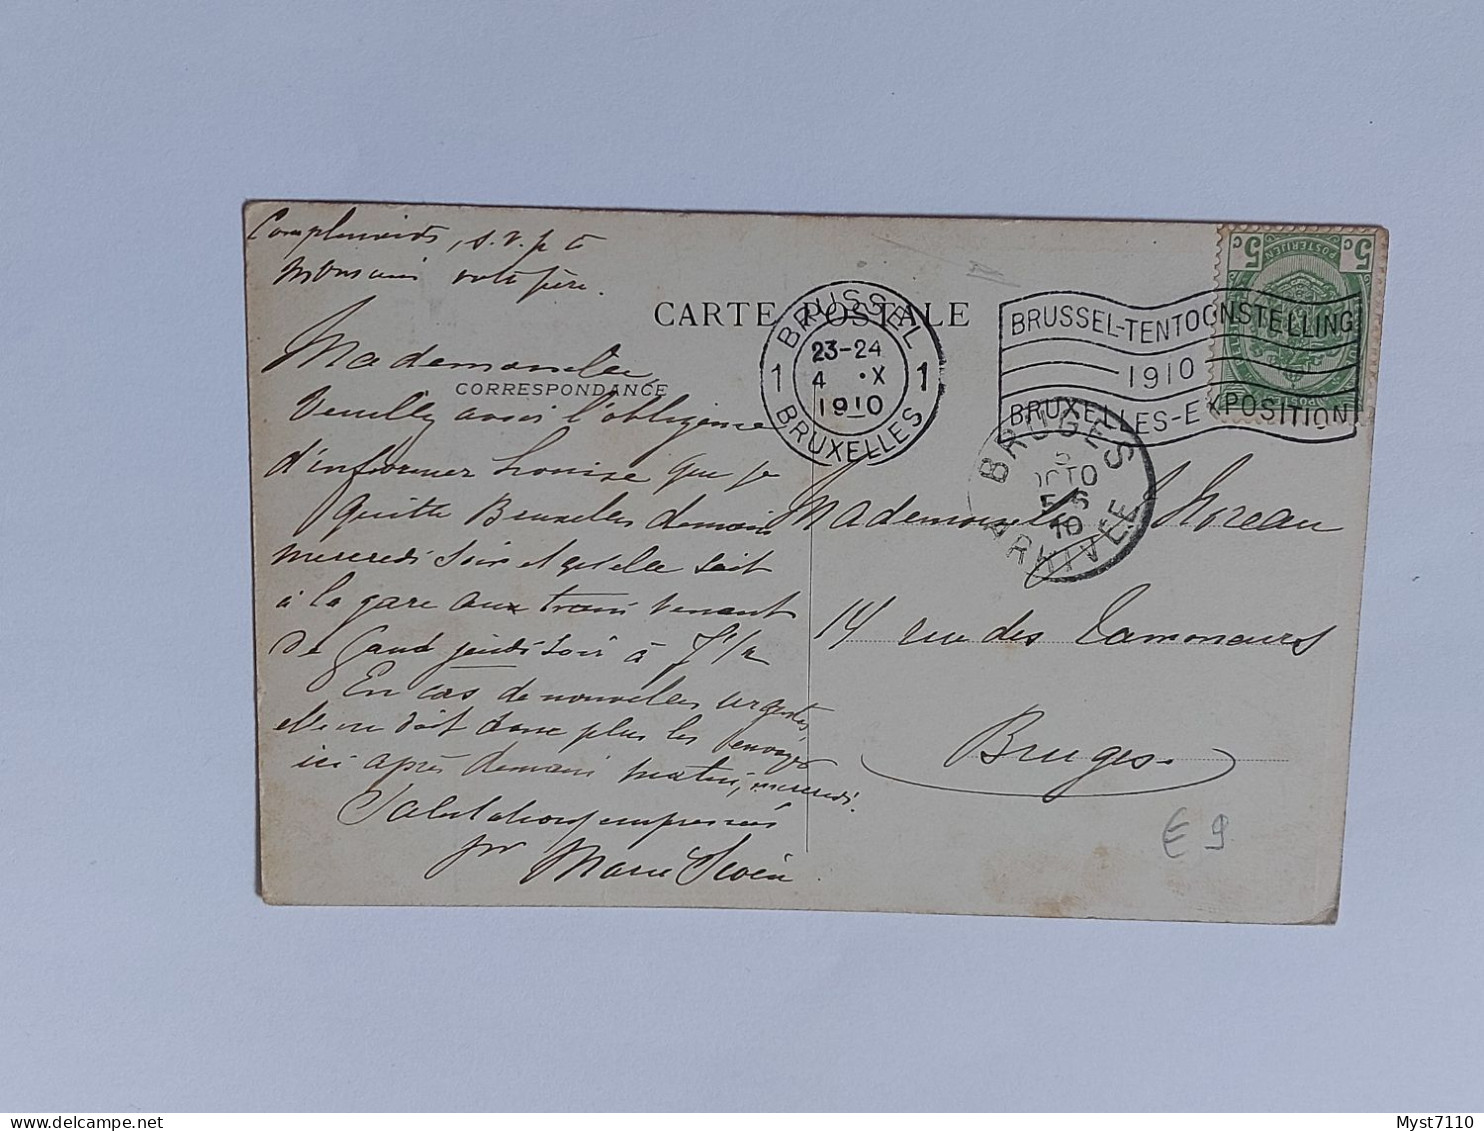 Compliments, s.v.p. à
Monsieur votre père.
CARTE POSTALE
CORRESPONDANCE
Mademoiselle
Veuillez avoir l'obligeance
d'informer Louise que je
quitte Bruxelles demain
mercredi soir et qu'elle soit
à la gare aux train venant
de Gand jeudi soir à 7 1/2
En cas de nouvelles urgentes,
elle ne doit donc plus les envoyer
ici après demain matin, mercredi.
Salutations empressées
pr Marie
BRUSSEL
1 23-24 1
4 • X
1910
BRUXELLES
BRUSSEL-TENTOONSTELLING
1910
BRUXELLES-EXPOSITION
5c POSTERIJEN 5c
BRUGES
5
OCTO
5-6
10
ARRIVÉE
Mademoiselle Moreau
14 rue des
Bruges.
€ 9
Myst7110